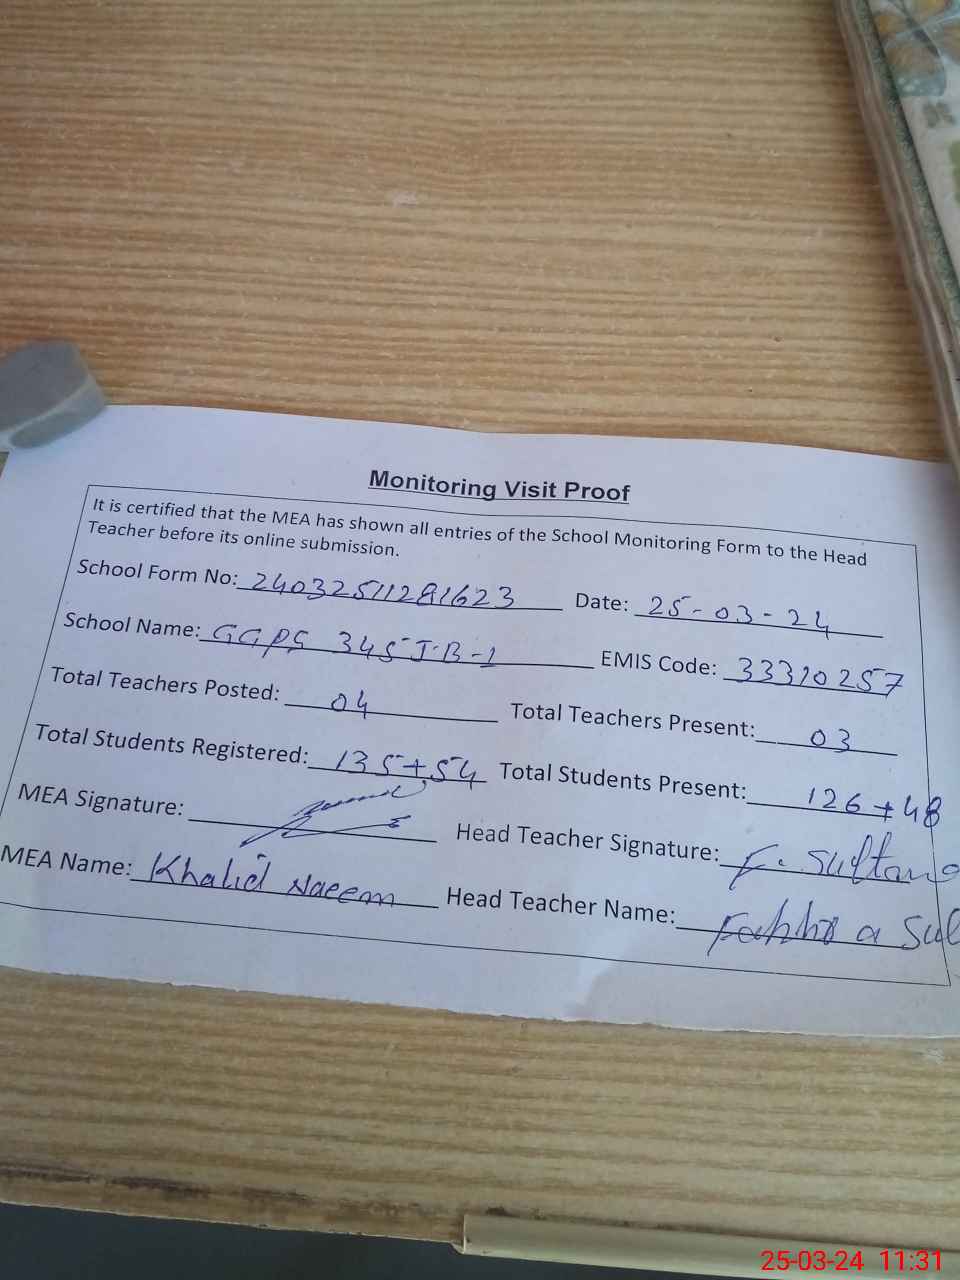 Monitoring Visit Proof
It is certified that the MEA has shown all entries of the School Monitoring Form to the Head
Teacher before its online submission.
School Form No: 24032511281623 Date: 25-03-24
School Name: GGPS 345 J.B-1 EMIS Code: 33310257
Total Teachers Posted: 04 Total Teachers Present: 03
Total Students Registered: 135+54 Total Students Present: 126+48
MEA Signature: Head Teacher Signature: F. Sultana
MEA Name: Khalid Naeem Head Teacher Name:
25-03-24 11:31